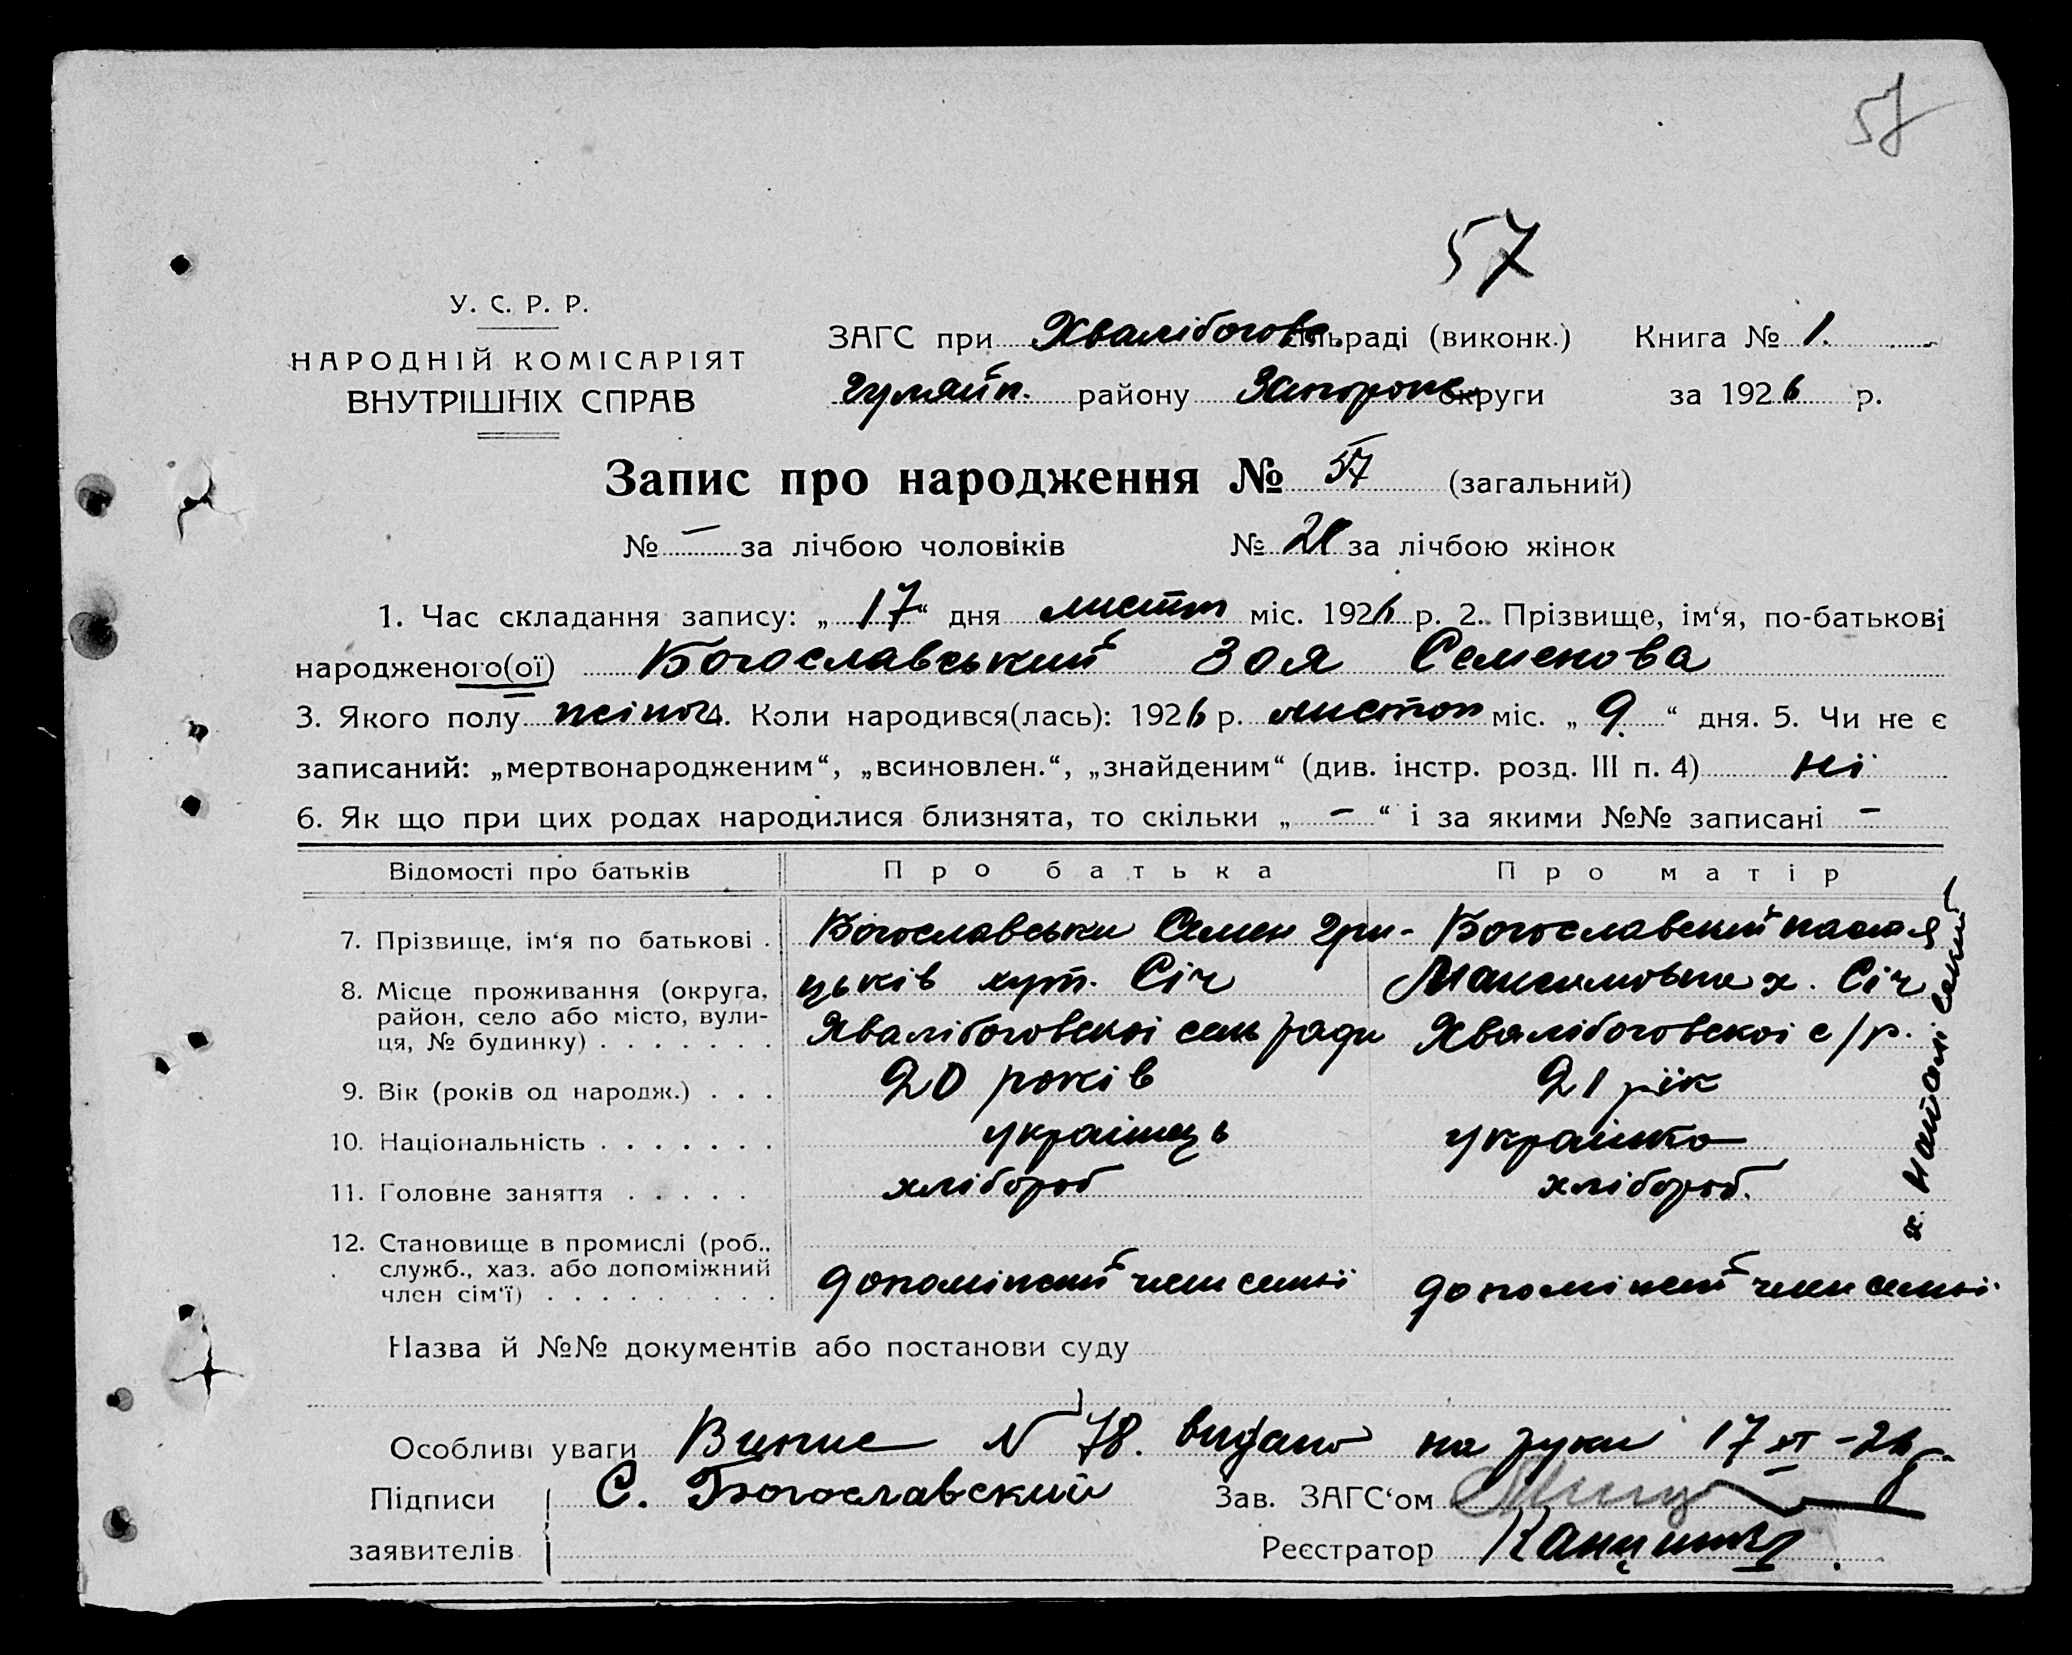 57
57
У. С. Р. Р.
НАРОДНІЙ КОМІСАРІЯТ
ВНУТРІШНІХ СПРАВ
ЗАГС при Хвалібогове сільраді (виконк.) Книга № 1.
Гуляйп. району Запорож округи за 1926 р.
Запис про народження № 57 (загальний)
№ — за лічбою чоловіків № 28 за лічбою жінок
1. Час складання запису: „17“ дня листоп міс. 1926 р. 2. Прізвище, ім‘я, по-батькові
народженого(ої) Богославський Зоя Семенова
3. Якого полу жіноч 4. Коли народився(лась): 1926 р. листоп міс. „9.“ дня. 5. Чи не є
записаний: „мертвонародженим“, „всиновлен.“, „знайденим“ (див. інстр. розд. III п. 4) ні
6. Як що при цих родах народилися близнята, то скільки „ – “ і за якими №№ записані –
Відомості про батьків Про батька Про матір
7. Прізвище, ім‘я по батькові . Богославськи Семен Гри- Богославский
8. Місце проживання (округа, район, село або місто, вулиця, № будинку) цьків хут. Січ Максимовна х. Січ
Хвалібоговскоі сель ради Хвалібоговскоі с/р.
9. Вік (років од народж.) . . . 20 років 21 рік
10. Національність . . . . . . . українець українка
11. Головне заняття . . . . . хлібороб хлібороб.
12. Становище в промислі (роб., служб., хаз. або допоміжний член сім‘ї) допоміжний член семьї допоміжний член семьї
Назва й №№ документів або постанови суду
Особливі уваги Випис № 78. видано на руки 17 XI – 26 р.
Підписи С. Богославский Зав. ЗАГС‘ом
заявителів Реєстратор